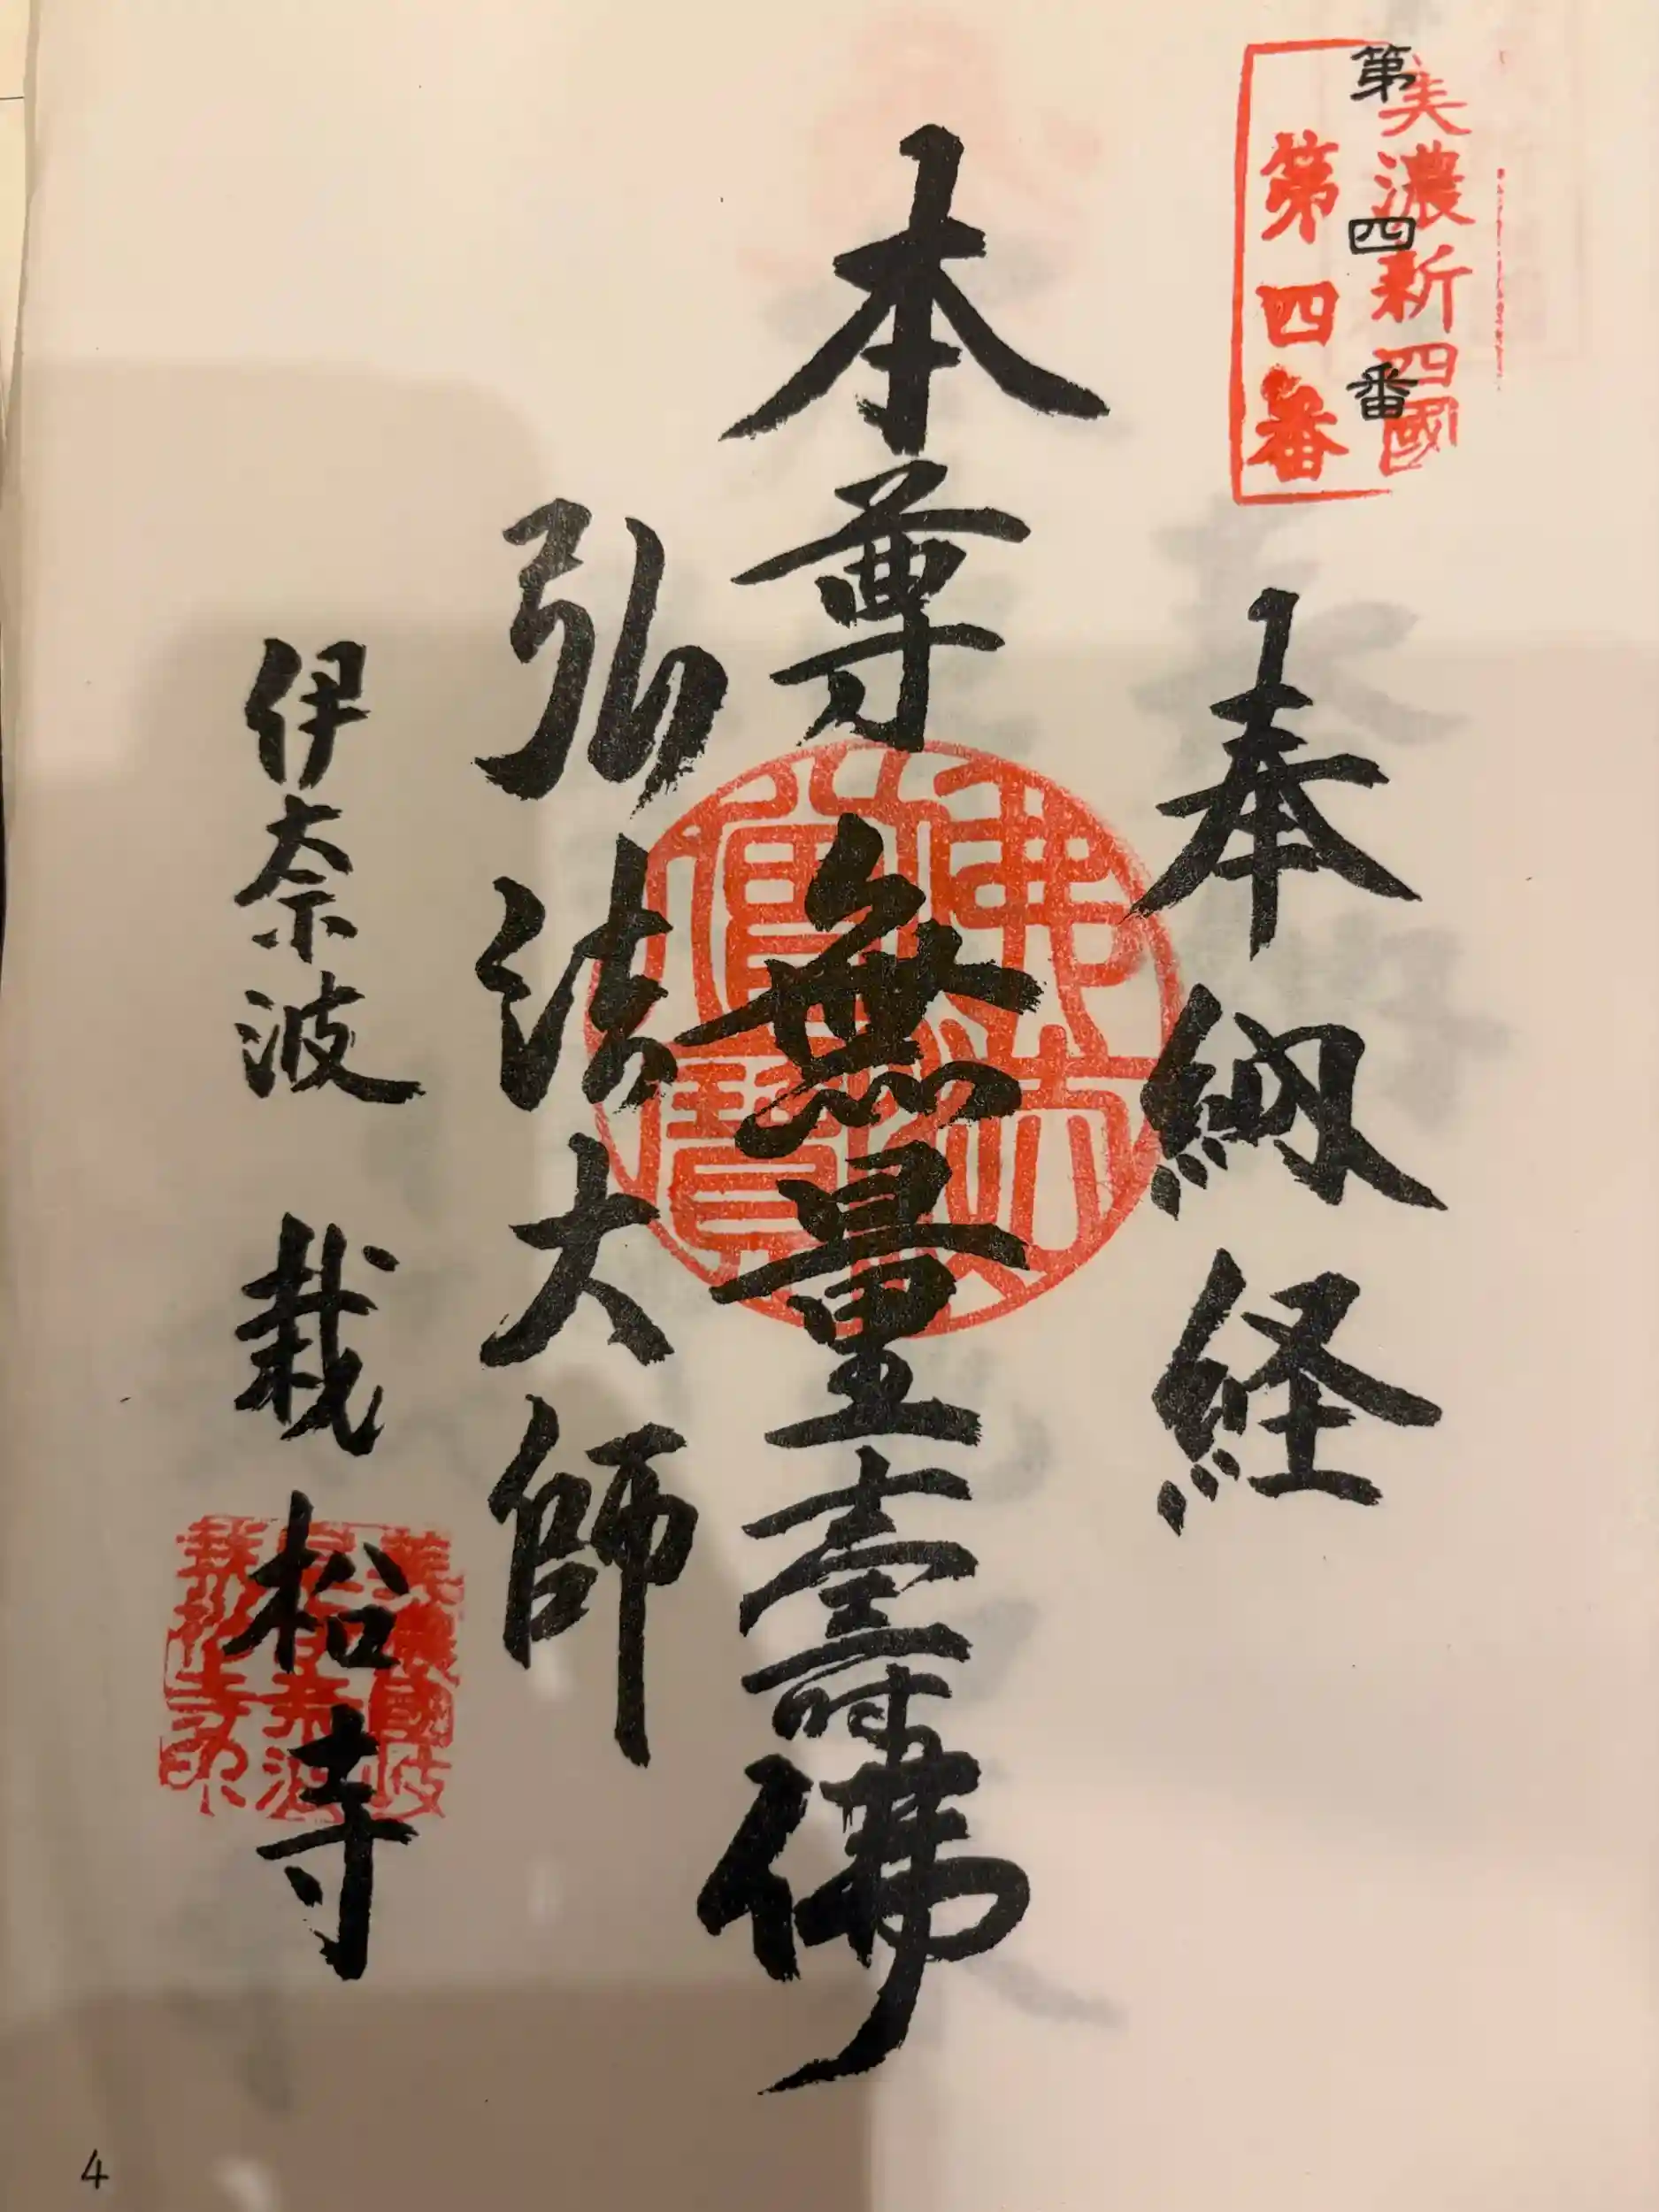 美濃新四國
第四番
第四番
奉納経
本尊無量壽佛
弘法大師
伊奈波 栽松寺
佛法僧寳
4